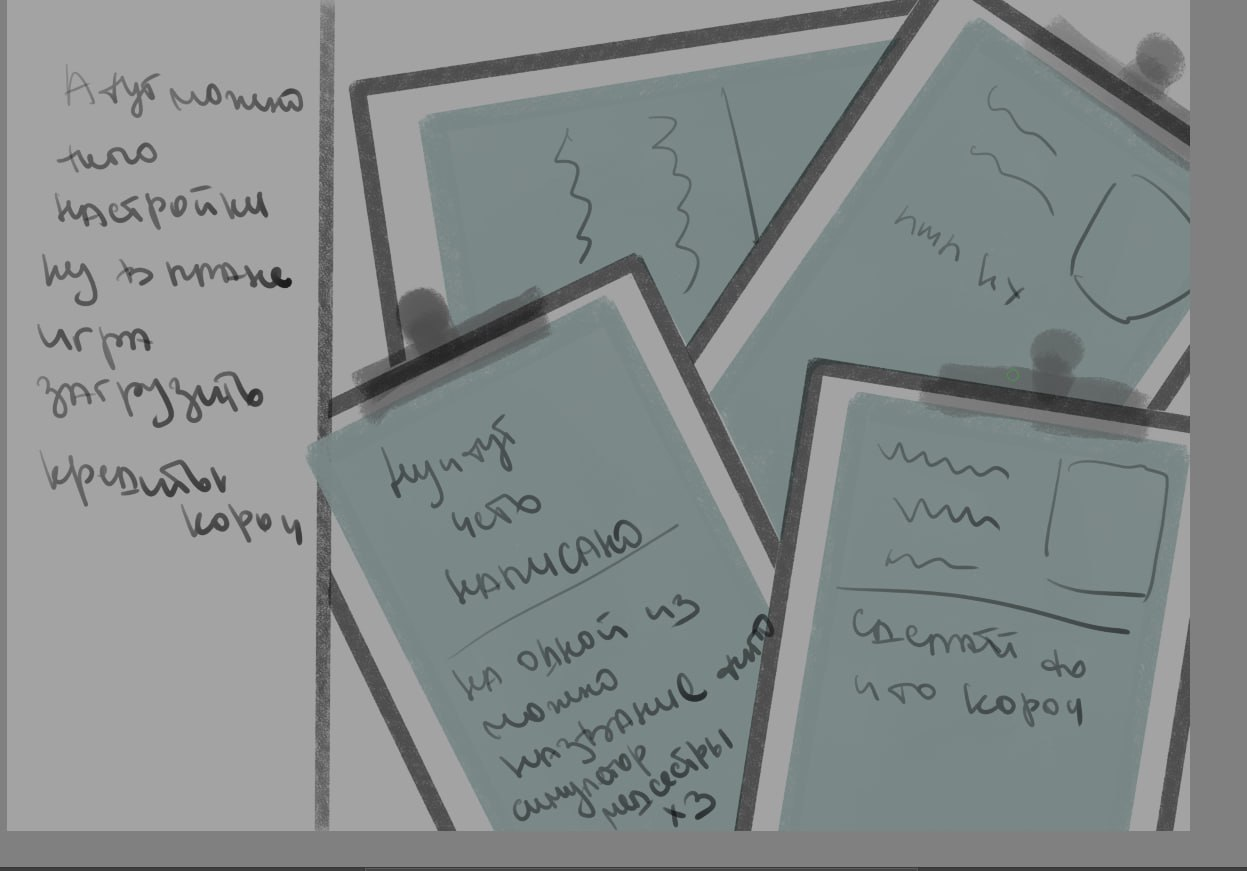 А тут можно
типо
настройки
ну в плане
игра
загрузить
кредиты
короч
ну и тут
чето
написано
на одной из
можно
название типо
симулятор
медсестры
хз
сделай то
что короч